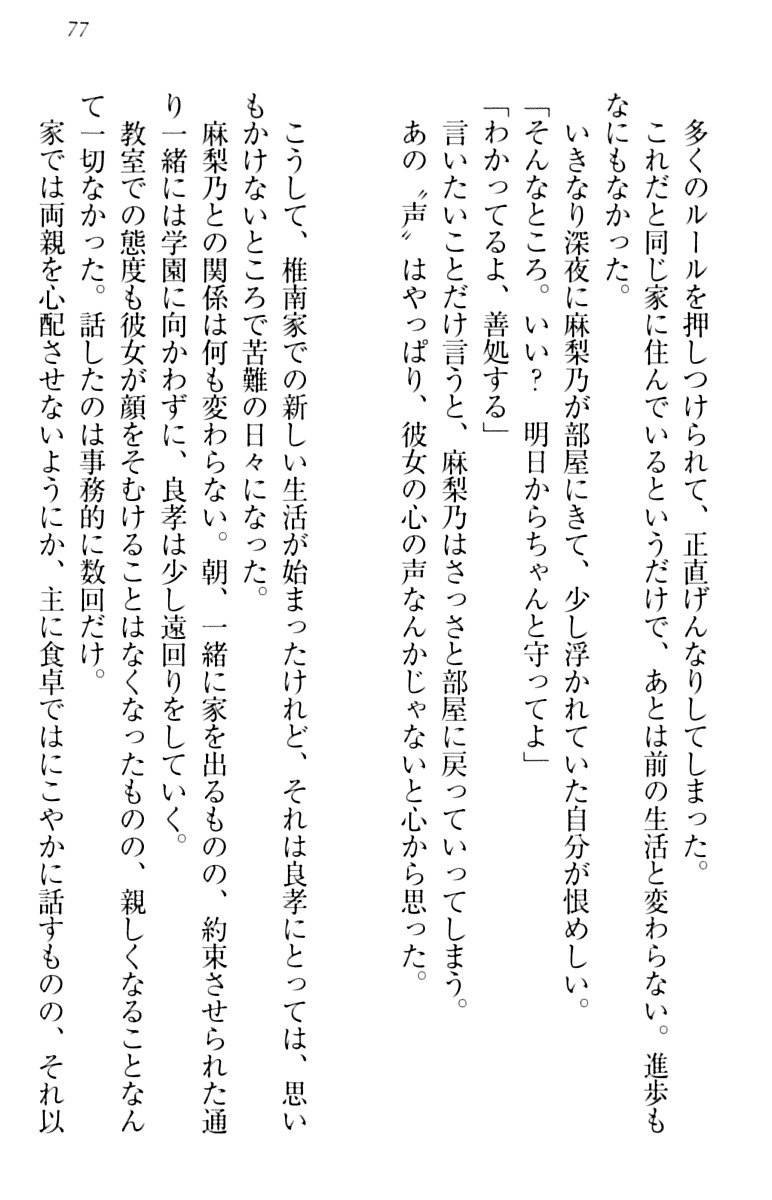 77
多くのルールを押しつけられて、正直げんなりしてしまった。
これだと同じ家に住んでいるというだけで、あとは前の生活と変わらない。進歩も
なにもなかった。
いきなり深夜に麻梨乃が部屋にきて、少し浮かれていた自分が恨めしい。
「そんなところ。いい？　明日からちゃんと守ってよ」
「わかってるよ、善処する」
言いたいことだけ言うと、麻梨乃はさっさと部屋に戻っていってしまう。
あの〝声〟はやっぱり、彼女の心の声なんかじゃないと心から思った。
こうして、椎南家での新しい生活が始まったけれど、それは良孝にとっては、思い
もかけないところで苦難の日々になった。
麻梨乃との関係は何も変わらない。朝、一緒に家を出るものの、約束させられた通
り一緒には学園に向かわずに、良孝は少し遠回りをしていく。
教室での態度も彼女が顔をそむけることはなくなったものの、親しくなることなん
て一切なかった。話したのは事務的に数回だけ。
家では両親を心配させないようにか、主に食卓ではにこやかに話すものの、それ以